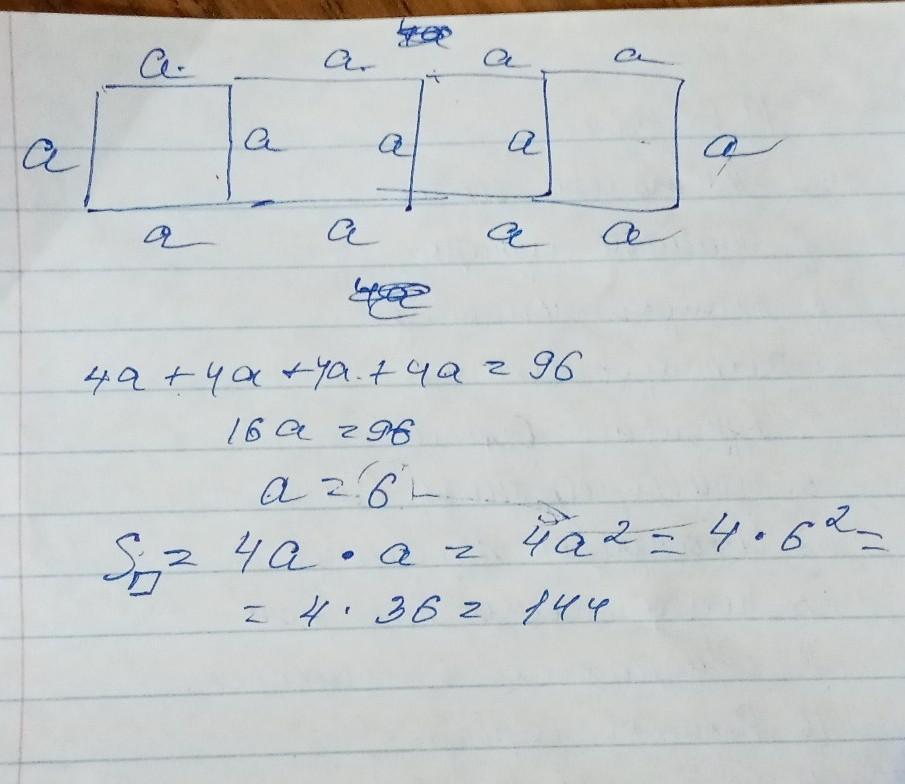 a a a a
a a a a a
a a a a
4a + 4a + 4a + 4a = 96
16a = 96
a = 6
S□ = 4a · a = 4a² = 4 · 6² =
= 4 · 36 = 144